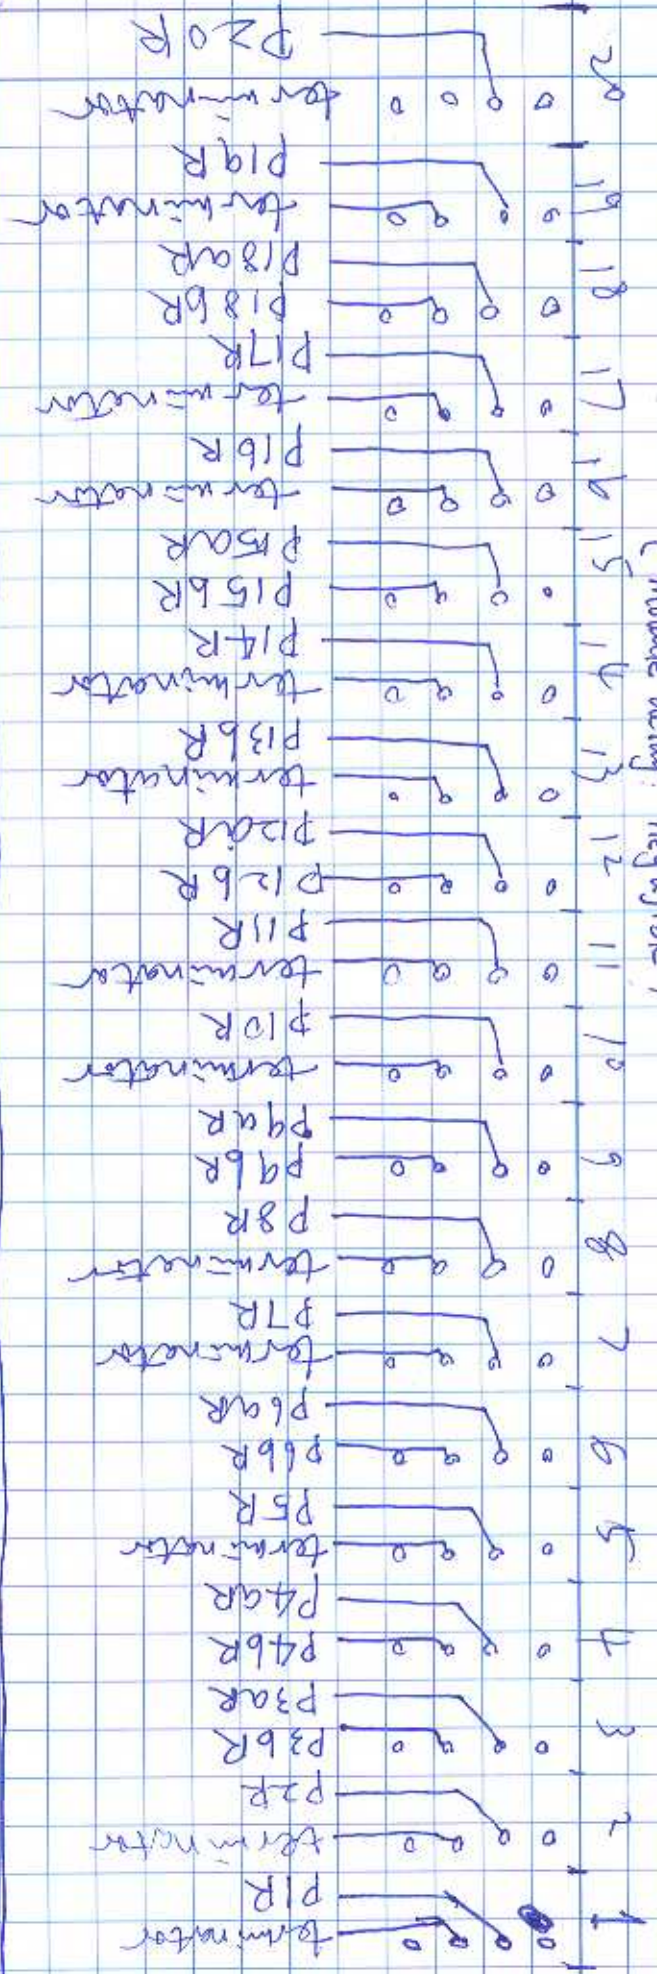 1 terminator
P1R
2 terminator
P2R
3 P3bR
P3aR
4 P4bR
P4aR
5 terminator
P5R
6 P6bR
P6aR
7 terminator
P7R
8 terminator
P8R
9 P9bR
P9aR
10 terminator
P10R
11 terminator
P11R
12 P12bR
P12aR
13 terminator
P13bR
14 terminator
P14R
15 P15bR
P15aR
16 terminator
P16R
17 terminator
P17R
18 P18bR
P18aR
19 terminator
P19R
20 terminator
P20R